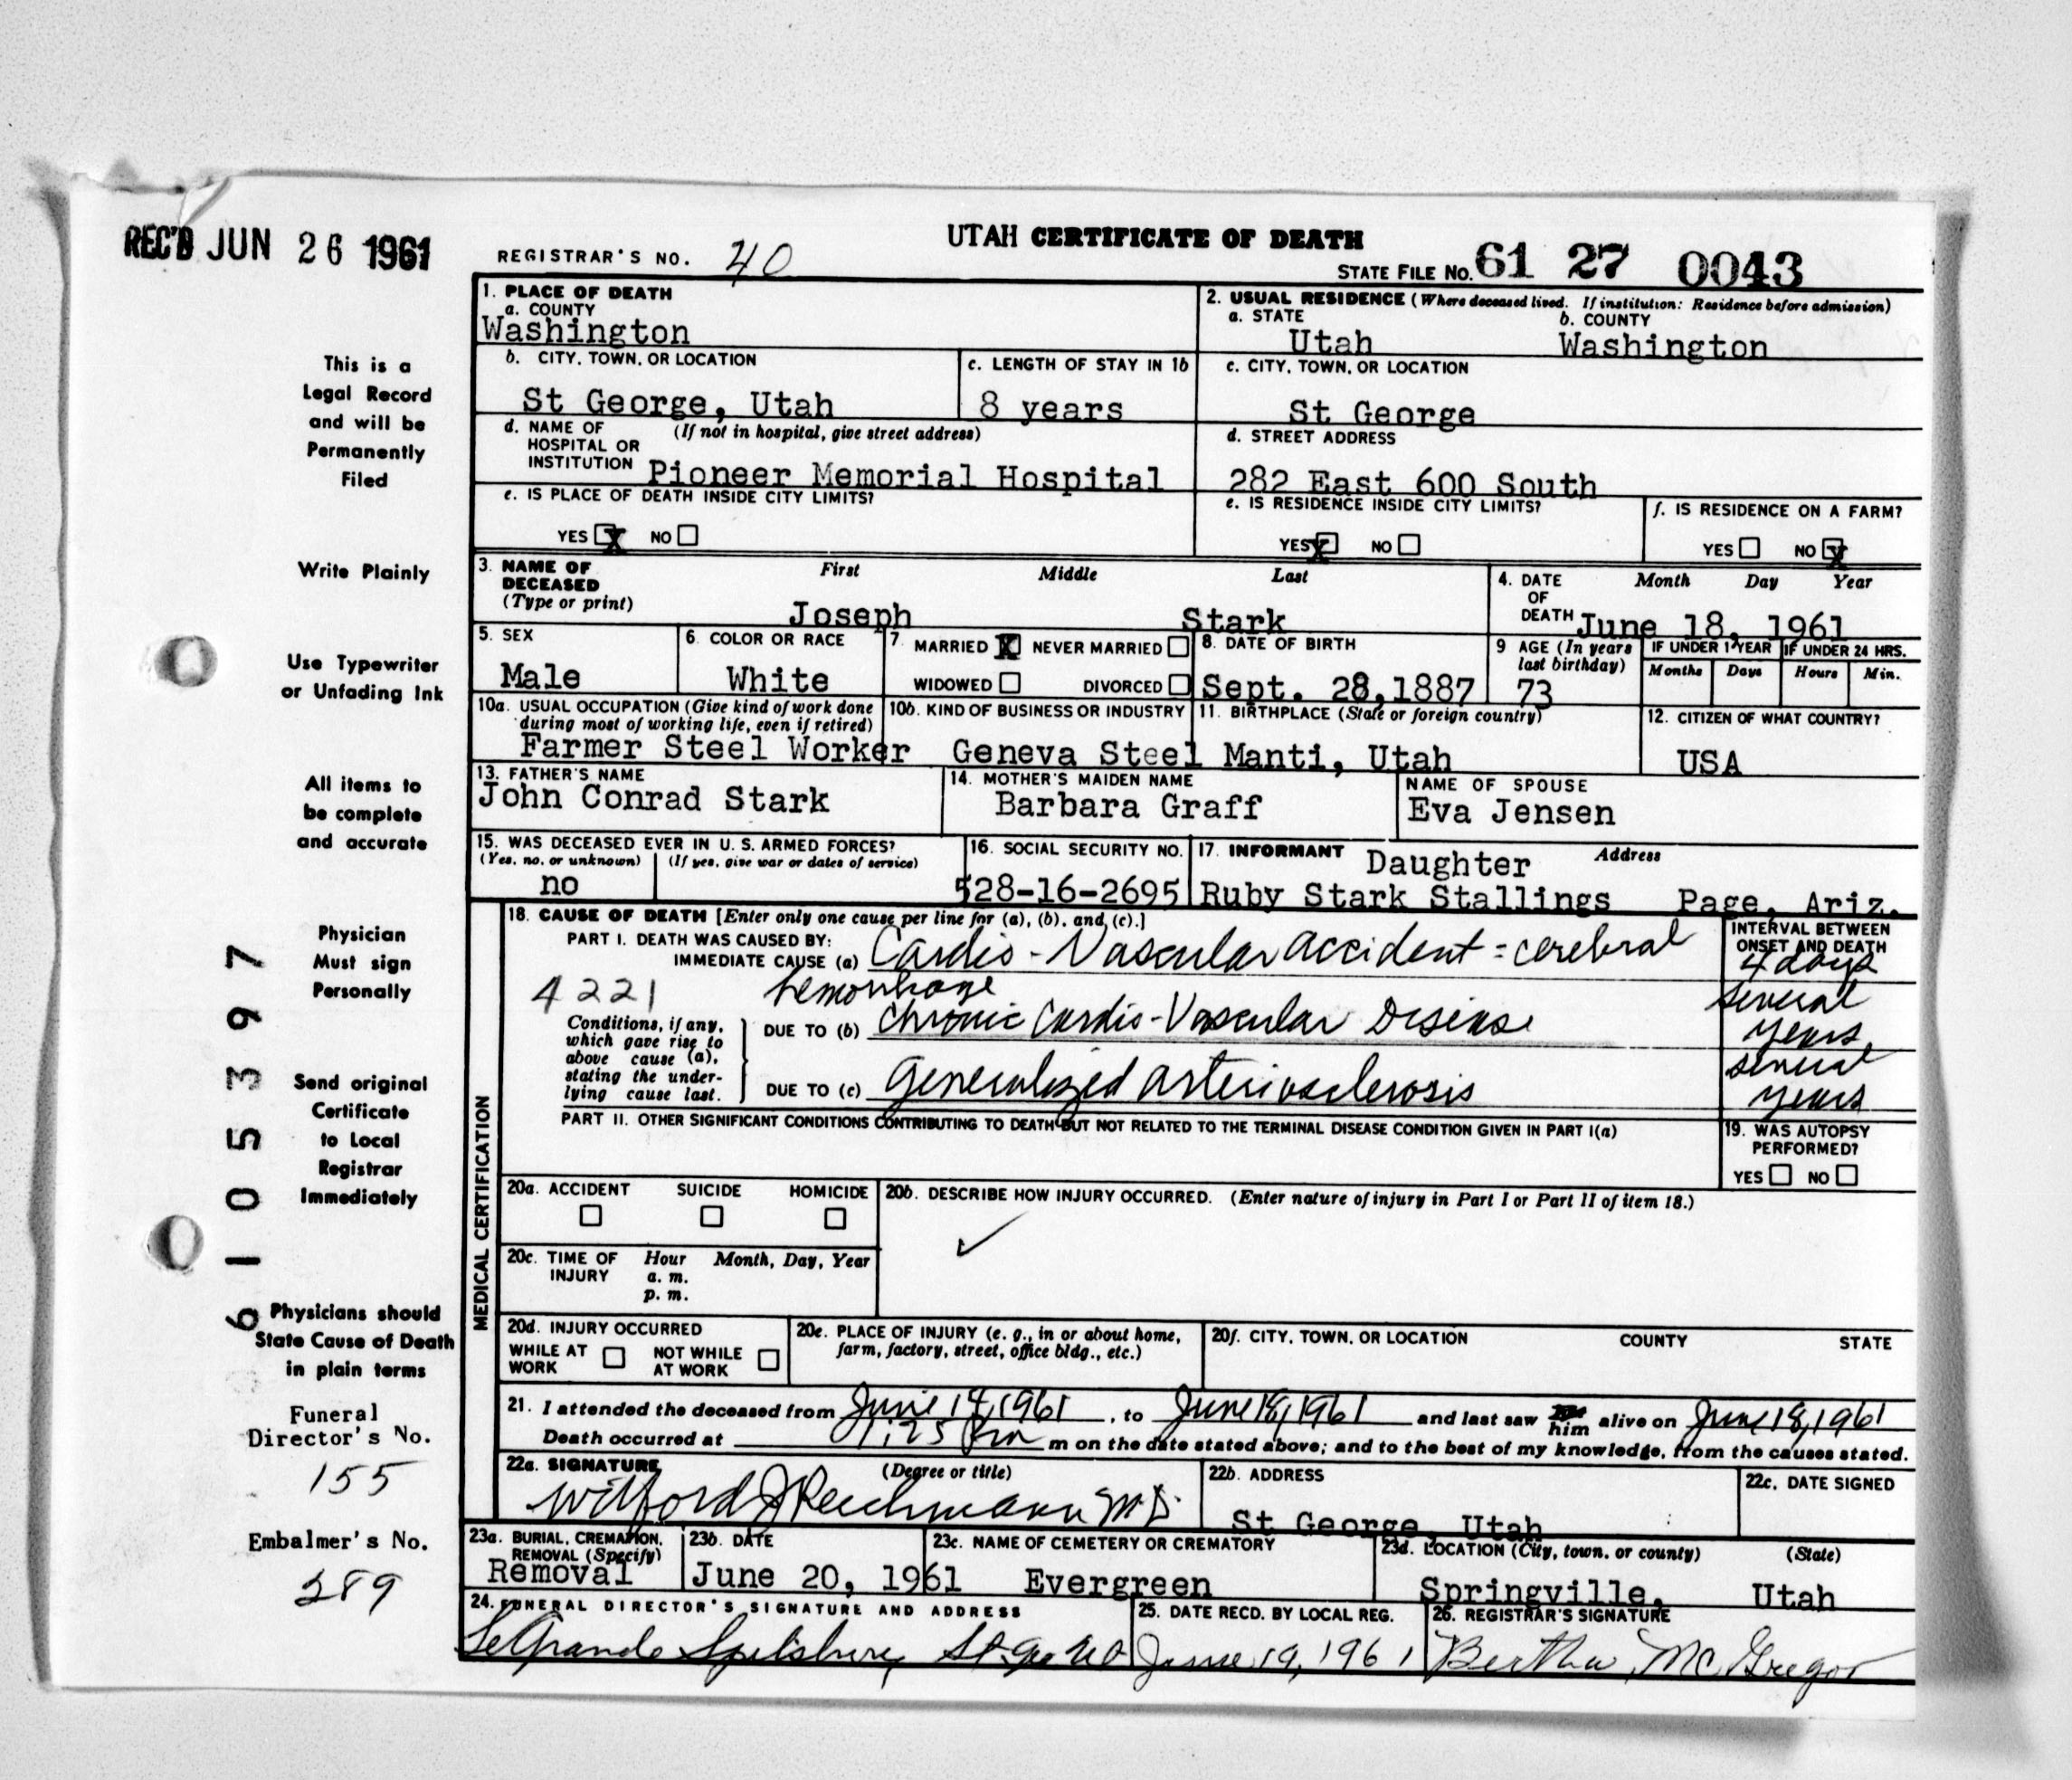 REC'D JUN 26 1961
UTAH CERTIFICATE OF DEATH
REGISTRAR'S NO. 40
STATE FILE NO. 61 27 0043
This is a
Legal Record
and will be
Permanently
Filed
Write Plainly
Use Typewriter
or Unfading Ink
All items to
be complete
and accurate
Physician
Must sign
Personally
Send original
Certificate
to Local
Registrar
Immediately
Physicians should
State Cause of Death
in plain terms
Funeral
Director's No.
155
Embalmer's No.
289
6105397
1. PLACE OF DEATH
a. COUNTY
Washington
2. USUAL RESIDENCE (Where deceased lived. If institution: Residence before admission)
a. STATE b. COUNTY
Utah Washington
b. CITY, TOWN, OR LOCATION
St George, Utah
c. LENGTH OF STAY IN 1b
8 years
c. CITY, TOWN, OR LOCATION
St George
d. NAME OF (If not in hospital, give street address)
HOSPITAL OR
INSTITUTION Pioneer Memorial Hospital
d. STREET ADDRESS
282 East 600 South
e. IS PLACE OF DEATH INSIDE CITY LIMITS?
YES X NO
e. IS RESIDENCE INSIDE CITY LIMITS?
YES X NO
f. IS RESIDENCE ON A FARM?
YES NO X
3. NAME OF First Middle Last
DECEASED
(Type or print)
Joseph Stark
4. DATE Month Day Year
OF
DEATH June 18, 1961
5. SEX
Male
6. COLOR OR RACE
White
7. MARRIED X NEVER MARRIED
WIDOWED DIVORCED
8. DATE OF BIRTH
Sept. 28,1887
9 AGE (In years
last birthday)
73
IF UNDER 1 YEAR IF UNDER 24 HRS.
Months Days Hours Min.
10a. USUAL OCCUPATION (Give kind of work done
during most of working life, even if retired)
Farmer Steel Worker
10b. KIND OF BUSINESS OR INDUSTRY
Geneva Steel
11. BIRTHPLACE (State or foreign country)
Manti, Utah
12. CITIZEN OF WHAT COUNTRY?
USA
13. FATHER'S NAME
John Conrad Stark
14. MOTHER'S MAIDEN NAME
Barbara Graff
NAME OF SPOUSE
Eva Jensen
15. WAS DECEASED EVER IN U. S. ARMED FORCES?
(Yes, no, or unknown) (If yes, give war or dates of service)
no
16. SOCIAL SECURITY NO.
528-16-2695
17. INFORMANT Daughter Address
Ruby Stark Stallings Page, Ariz.
MEDICAL CERTIFICATION
18. CAUSE OF DEATH [Enter only one cause per line for (a), (b), and (c).]
PART I. DEATH WAS CAUSED BY:
IMMEDIATE CAUSE (a) Cardio-Vascular accident = cerebral
4221 hemorrhage
INTERVAL BETWEEN
ONSET AND DEATH
4 days
Conditions, if any,
which gave rise to
above cause (a),
stating the under-
lying cause last.
DUE TO (b) Chronic Cardio-Vascular Disease
several
years
DUE TO (c) Generalized arteriosclerosis
several
years
PART II. OTHER SIGNIFICANT CONDITIONS CONTRIBUTING TO DEATH BUT NOT RELATED TO THE TERMINAL DISEASE CONDITION GIVEN IN PART I(a)
19. WAS AUTOPSY
PERFORMED?
YES NO
20a. ACCIDENT SUICIDE HOMICIDE
20b. DESCRIBE HOW INJURY OCCURRED. (Enter nature of injury in Part I or Part II of item 18.)
✓
20c. TIME OF Hour Month, Day, Year
INJURY a. m.
p. m.
20d. INJURY OCCURRED
WHILE AT NOT WHILE
WORK AT WORK
20e. PLACE OF INJURY (e. g., in or about home,
farm, factory, street, office bldg., etc.)
20f. CITY, TOWN, OR LOCATION COUNTY STATE
21. I attended the deceased from June 14, 1961, to June 18, 1961 and last saw him alive on June 18, 1961
Death occurred at 1:25 Pm m on the date stated above; and to the best of my knowledge, from the causes stated.
22a. SIGNATURE (Degree or title)
Wilford J Reichmann M.D.
22b. ADDRESS
St George, Utah
22c. DATE SIGNED
23a. BURIAL, CREMATION,
REMOVAL (Specify)
Removal
23b. DATE
June 20, 1961
23c. NAME OF CEMETERY OR CREMATORY
Evergreen
23d. LOCATION (City, town, or county) (State)
Springville, Utah
24. FUNERAL DIRECTOR'S SIGNATURE AND ADDRESS
LeGrande Spilsbury St. Geo
25. DATE RECD. BY LOCAL REG.
June 19, 1961
26. REGISTRAR'S SIGNATURE
Bertha McGregor